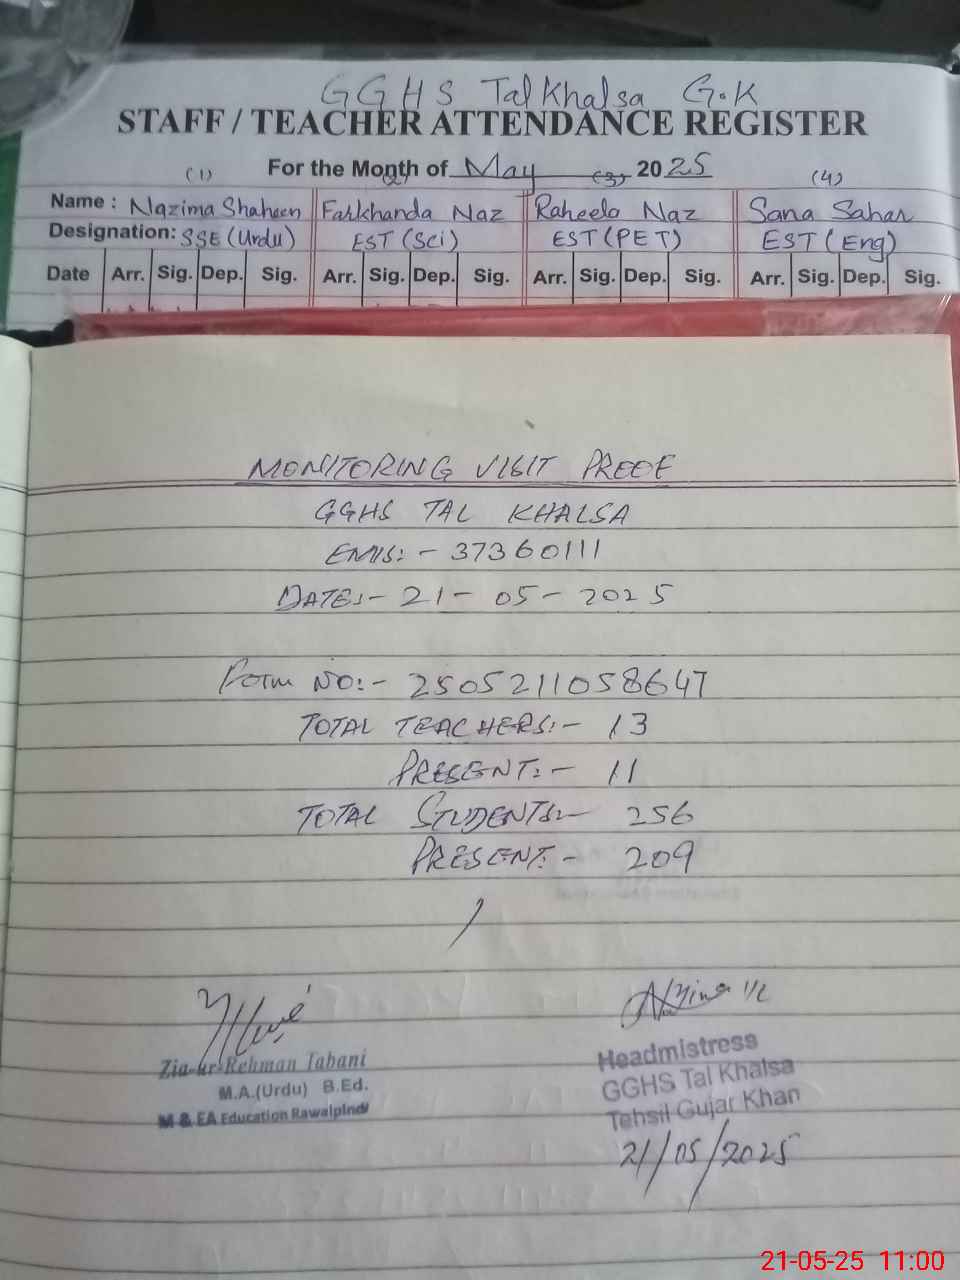 GGHS Tal Khalsa G.K
STAFF / TEACHER ATTENDANCE REGISTER
For the Month of May 2025
(1) (2) (3) (4)
Name : Nazima Shaheen Farkhanda Naz Raheela Naz Sana Sahar
Designation: SSE (Urdu) EST (Sci) EST (PET) EST (Eng)
Date Arr. Sig. Dep. Sig. Arr. Sig. Dep. Sig. Arr. Sig. Dep. Sig. Arr. Sig. Dep. Sig.
MONITORING VISIT PROOF
GGHS TAL KHALSA
EMIS:- 37360111
DATE:- 21-05-2025
Form NO:- 2505211058647
TOTAL TEACHERS:- 13
PRESENT:- 11
TOTAL STUDENTS:- 256
PRESENT:- 209
Zia-ur-Rehman Jabani
M.A.(Urdu) B.Ed.
M & EA Education Rawalpindi
Headmistress
GGHS Tal Khalsa
Tehsil Gujar Khan
21/05/2025
21-05-25 11:00